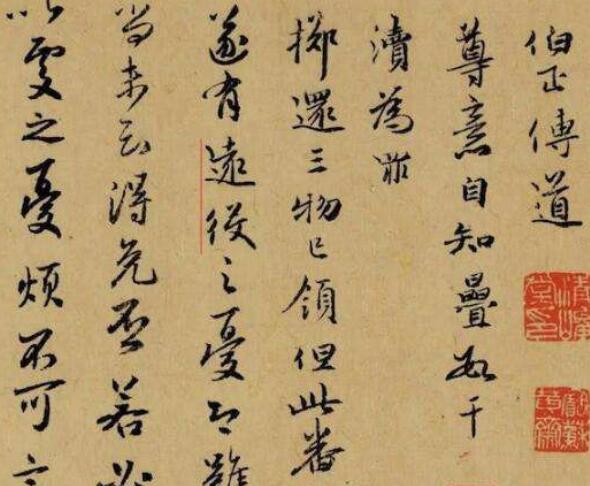 伯正傳道
尊意自知疊數干
瀆為罪
擲還三物已領但此番
遂有遠役之憂雖
未云得免否若必
以之憂煩不可言